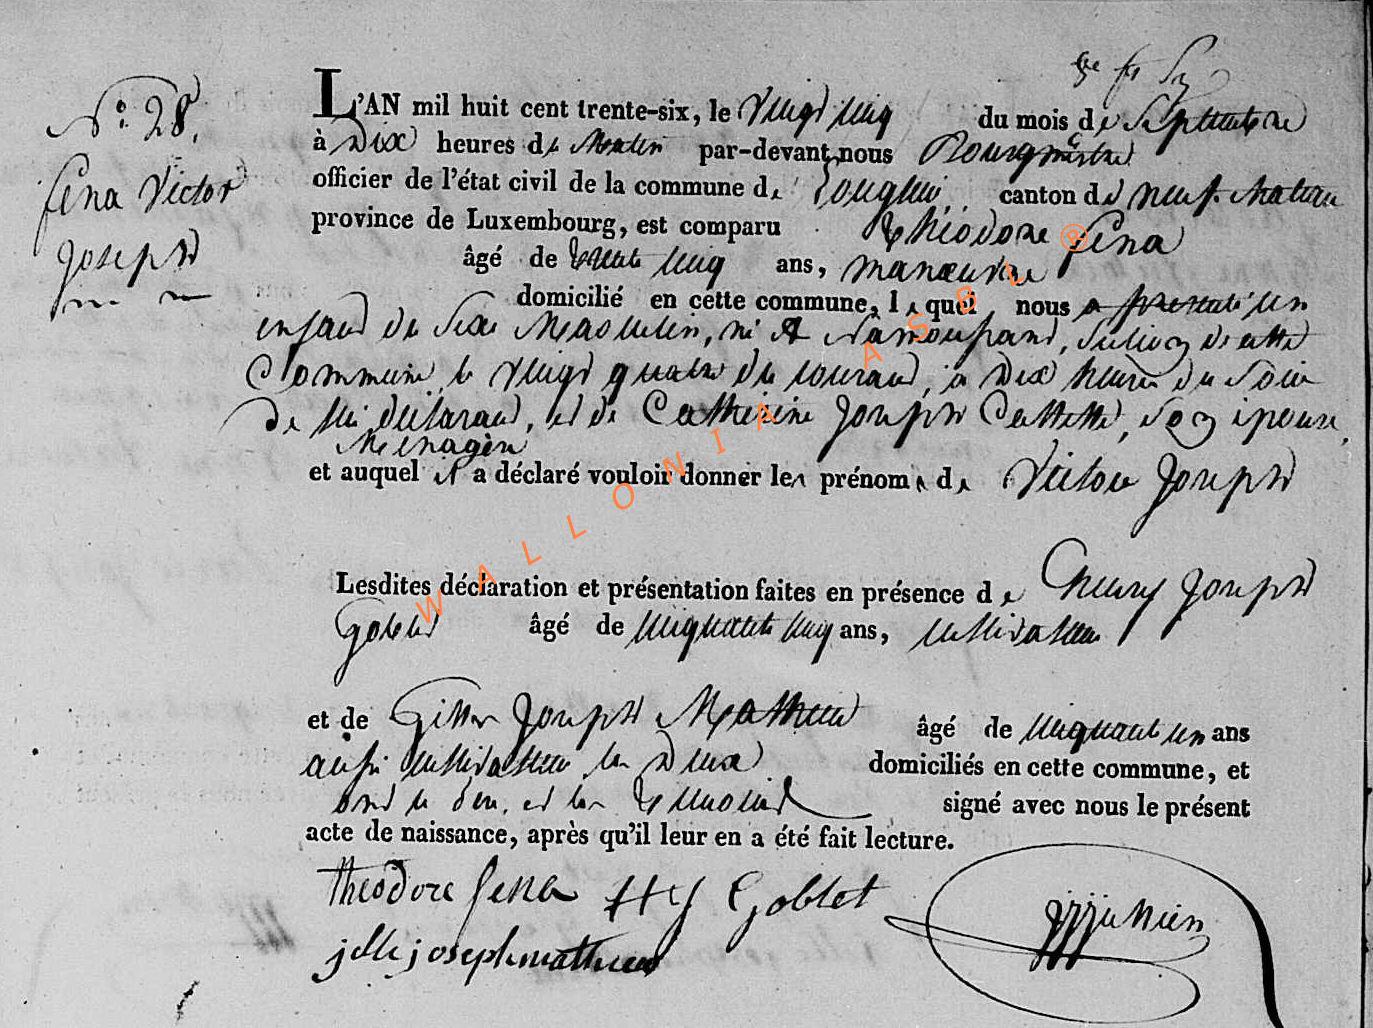 N°. 28.
L'AN mil huit cent trente-six, le Vingt cinq du mois de Septembre
à Dix heures de Matin par-devant nous Bourgmestre
Sena Victor
officier de l'état civil de la commune de Longlier, canton de neufchateau
Joseph
province de Luxembourg, est comparu Théodore Sena
âgé de trente cinq ans, manœuvre
domicilié en cette commune, lequel nous a présenté un
enfant du Sexe Masculin, né à Namoussart, Section de cette
Commune le vingt quatre du courant, à Dix heures du Soir
de lui déclarant, et de Catherine Joseph son épouse,
Ménagère
et auquel il a déclaré vouloir donner les prénoms de Victor Joseph
Lesdites déclaration et présentation faites en présence de Henry Joseph
Goblet âgé de cinquante cinq ans, cultivateur
et de Gilles Joseph Mathieu âgé de cinquante un ans
aussi cultivateur les Deux domiciliés en cette commune, et
ont le père et les témoins signé avec nous le présent
acte de naissance, après qu'il leur en a été fait lecture.
theodore sena HJ Goblet
jille joseph mathieu
WALLONIA ASBL ®